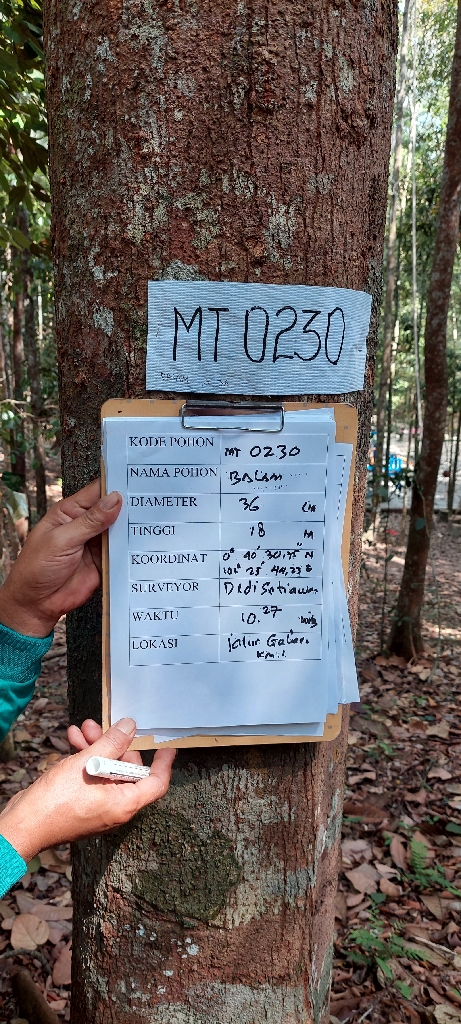 MT 0230
KODE POHON MT 0230
NAMA POHON BALAM
DIAMETER 36 CM
TINGGI 18 M
KOORDINAT 0° 40' 30,75" N
101° 25' 44,23" E
SURVEYOR Dedi Setiawan
WAKTU 10.27 WIB
LOKASI jalur
KM.1